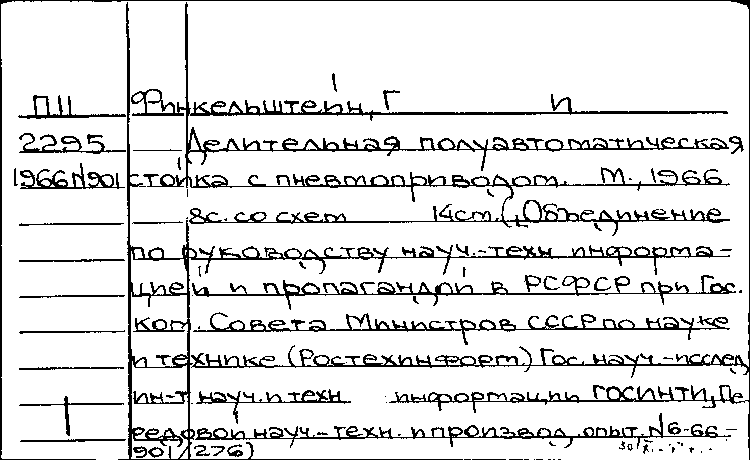 П11 Финкельштейн, Г И
2295 Делительная полуавтоматическая
1966 N901 стойка с пневмоприводом. М., 1966
8с. со схем 14см. („Объединение
по руководству науч.-техн информа-
цией и пропагандой в РСФСР при Гос.
Ком. Совета Министров СССР по науке
и технике (Ростехинформ.) Гос. науч.-исслед
ин-т науч. и техн информации ГОСИНТИ, Пе-
редовой науч.-техн. и производ. опыт, N6-66-
901/276)